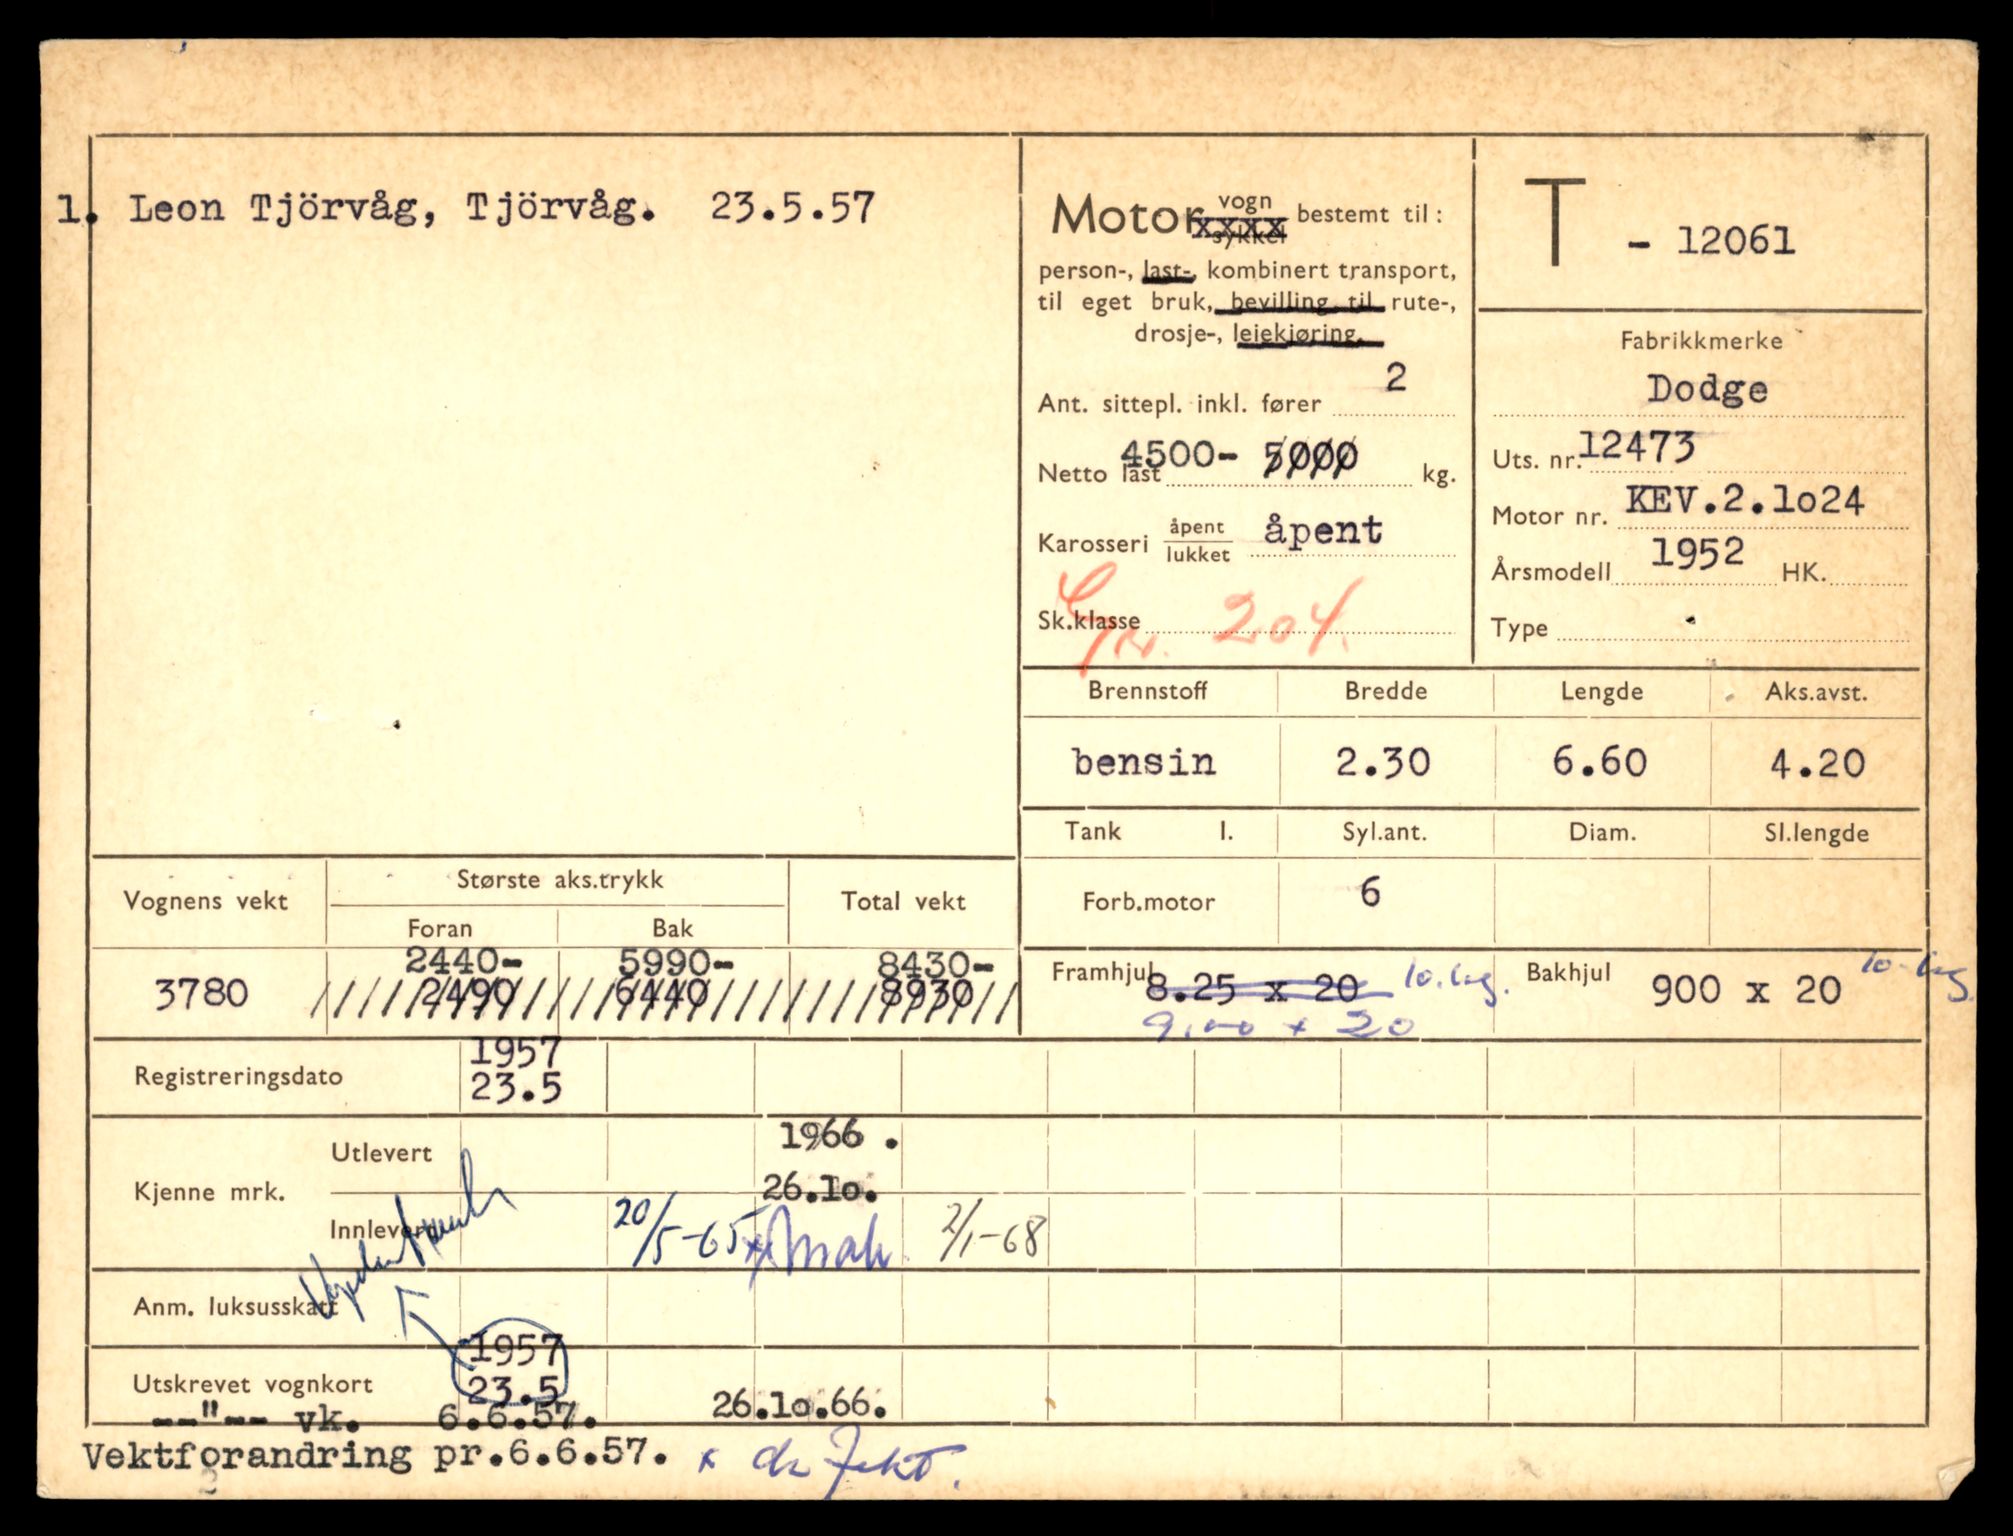 1. Leon Tjörvåg, Tjörvåg. 23.5.57
Motor vogn xxxx sykkel bestemt til:
person-, last-, kombinert transport,
til eget bruk, bevilling til rute-,
drosje-, leiekjøring.
Ant. sittepl. inkl. fører 2
Netto last 4500- 5000 kg.
Karosseri åpent lukket åpent
Sk.klasse Gr. 204.
T - 12061
Fabrikkmerke
Dodge
Uts. nr. 12473
Motor nr. KEV.2.1o24
Årsmodell 1952 HK.
Type
Brennstoff Bredde Lengde Aks.avst.
bensin 2.30 6.60 4.20
Tank l. Syl.ant. Diam. Sl.lengde
Forb.motor 6
Vognens vekt Største aks.trykk Total vekt
Foran Bak
2440- 5990- 8430-
3780 2490 6440 8930
Framhjul 8.25 x 20 10. lag. Bakhjul 900 x 20 10. lag.
9.00 x 20
Registreringsdato 1957
23.5
Kjenne mrk. Utlevert 1966 .
26.1o.
Innlevert 20/5-65 x 2/1-68
Anm. luksusskatt
Utskrevet vognkort 1957
23.5
--"-- vk. 6.6.57. 26.1o.66.
Vektforandring pr.6.6.57. x